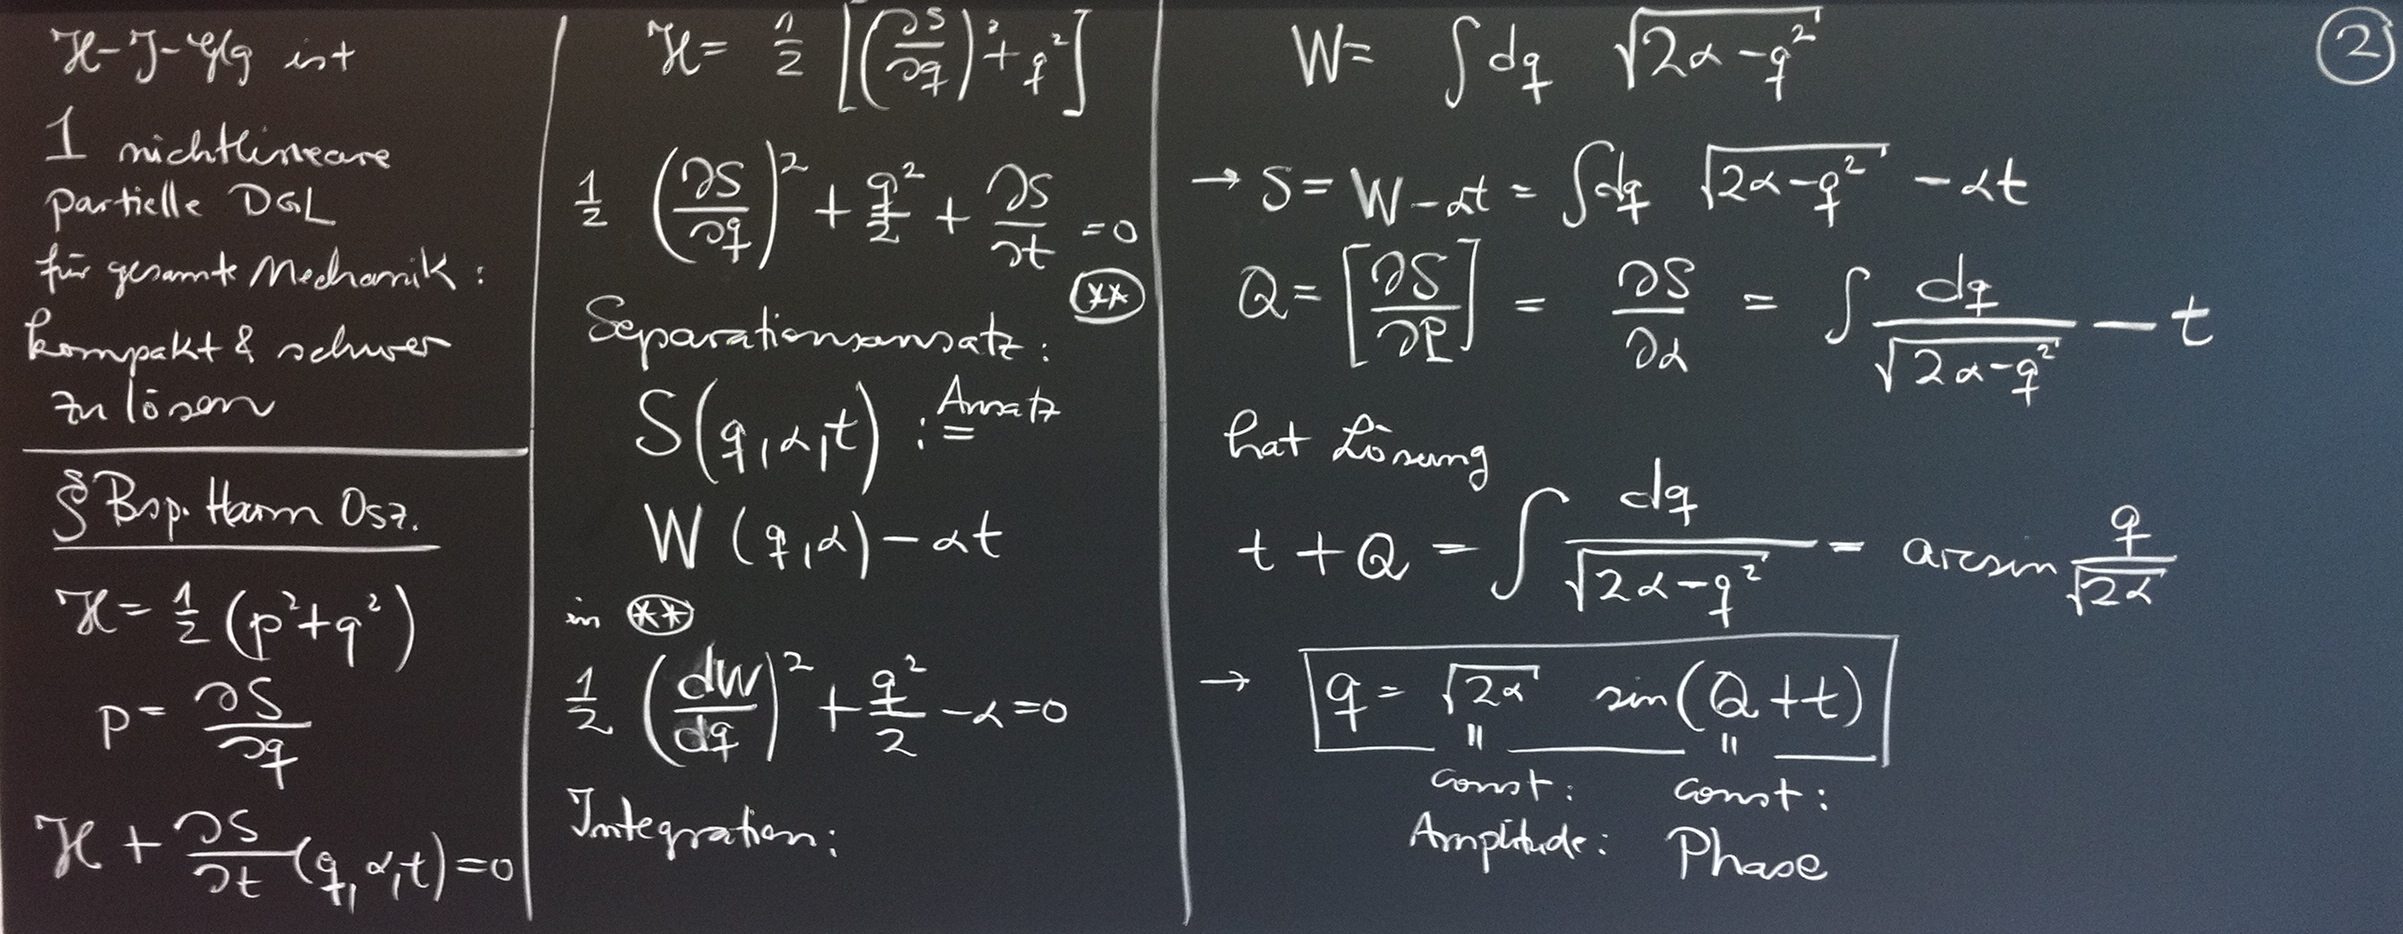 H-J-Glg ist
1 nichtlineare
partielle DGL
für gesamte Mechanik:
kompakt & schwer
zu lösen
§ Bsp. Harm Osz.
ℋ = 1/2 (p² + q²)
p = ∂S/∂q
ℋ + ∂S/∂t (q, α, t) = 0
ℋ = 1/2 [(∂S/∂q)² + q²]
1/2 (∂S/∂q)² + q²/2 + ∂S/∂t = 0
(**)
Separationsansatz:
S(q, α, t) := Ansatz
W (q, α) - αt
in (**)
1/2 (dW/dq)² + q²/2 - α = 0
Integration:
2
W = ∫ dq √(2α - q²)
→ S = W - αt = ∫ dq √(2α - q²) - αt
Q = [∂S/∂P] = ∂S/∂α = ∫ dq/√(2α - q²) - t
hat Lösung
t + Q = ∫ dq/√(2α - q²) = arcsin q/√(2α)
→ q = √(2α) sin(Q + t)
= =
const: const:
Amplitude: Phase